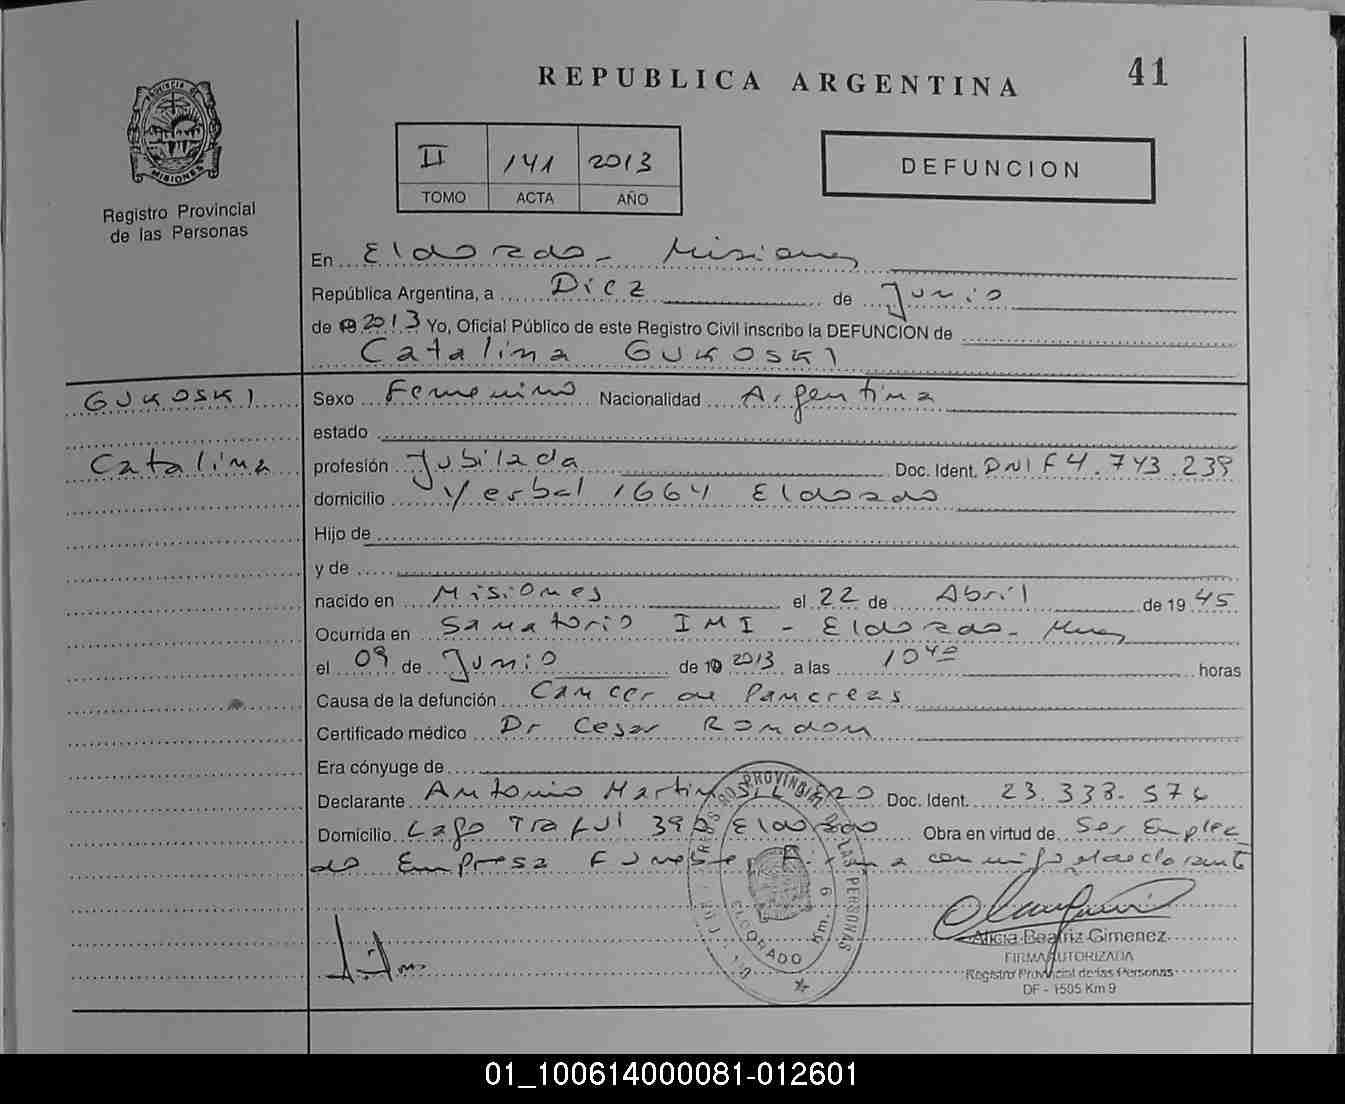 REPUBLICA ARGENTINA
41
PROVINCIA DE
MISIONES
Registro Provincial
de las Personas
II 141 2013
TOMO ACTA AÑO
DEFUNCION
En Eldorado - Misiones
República Argentina, a Diez de Junio
de 2013 Yo, Oficial Público de este Registro Civil inscribo la DEFUNCION de
Catalina GUKOSKI
GUKOSKI
Catalina
Sexo Femenino Nacionalidad Argentina
estado
profesión Jubilada Doc. Ident. DNI F4.743.239
domicilio Yerbal 1664 Eldorado
Hijo de
y de
nacido en Misiones el 22 de Abril de 19 45
Ocurrida en Sanatorio IMI - Eldorado - Mnes
el 09 de Junio de 2013 a las 10 40 horas
Causa de la defunción Cancer de Pancreas
Certificado médico Dr Cesar Rondon
Era cónyuge de
Declarante Antonio Martin Doc. Ident. 23.338.576
Domicilio Lago Traful 390 Eldorado Obra en virtud de Ser Emplea
do Empresa Funebre, Firma conmigo el declarante
REGISTRO PROVINCIAL DE LAS PERSONAS
ELDORADO Km. 9
Alicia Beatriz Gimenez
FIRMA AUTORIZADA
Registro Provincial de las Personas
DF - 1505 Km 9
01_100614000081-012601